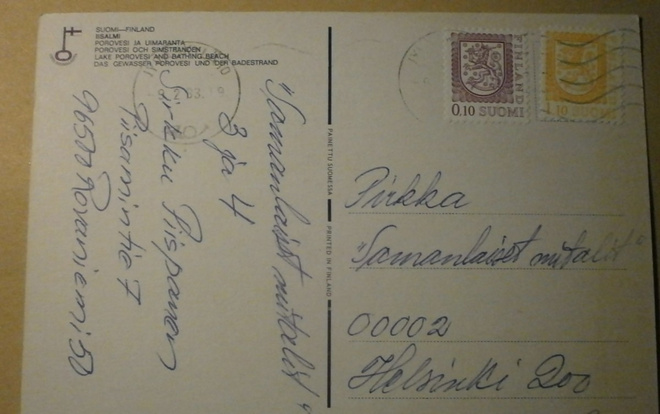 SUOMI—FINLAND
IISALMI
POROVESI JA UIMARANTA
POROVESI OCH SIMSTRANDEN
LAKE POROVESI AND BATHING BEACH
DAS GEWÄSSER POROVESI UND DER BADESTRAND
"Samanlaiset mitalit"
3 ja 4
Sirkku Piispanen
Piisamintie 7
96500 Rovaniemi 50
PAINETTU SUOMESSA
PRINTED IN FINLAND
FINLAND
0.10 SUOMI
1.10
Pirkka
"Samanlaiset mitalit"
00002
Helsinki 200